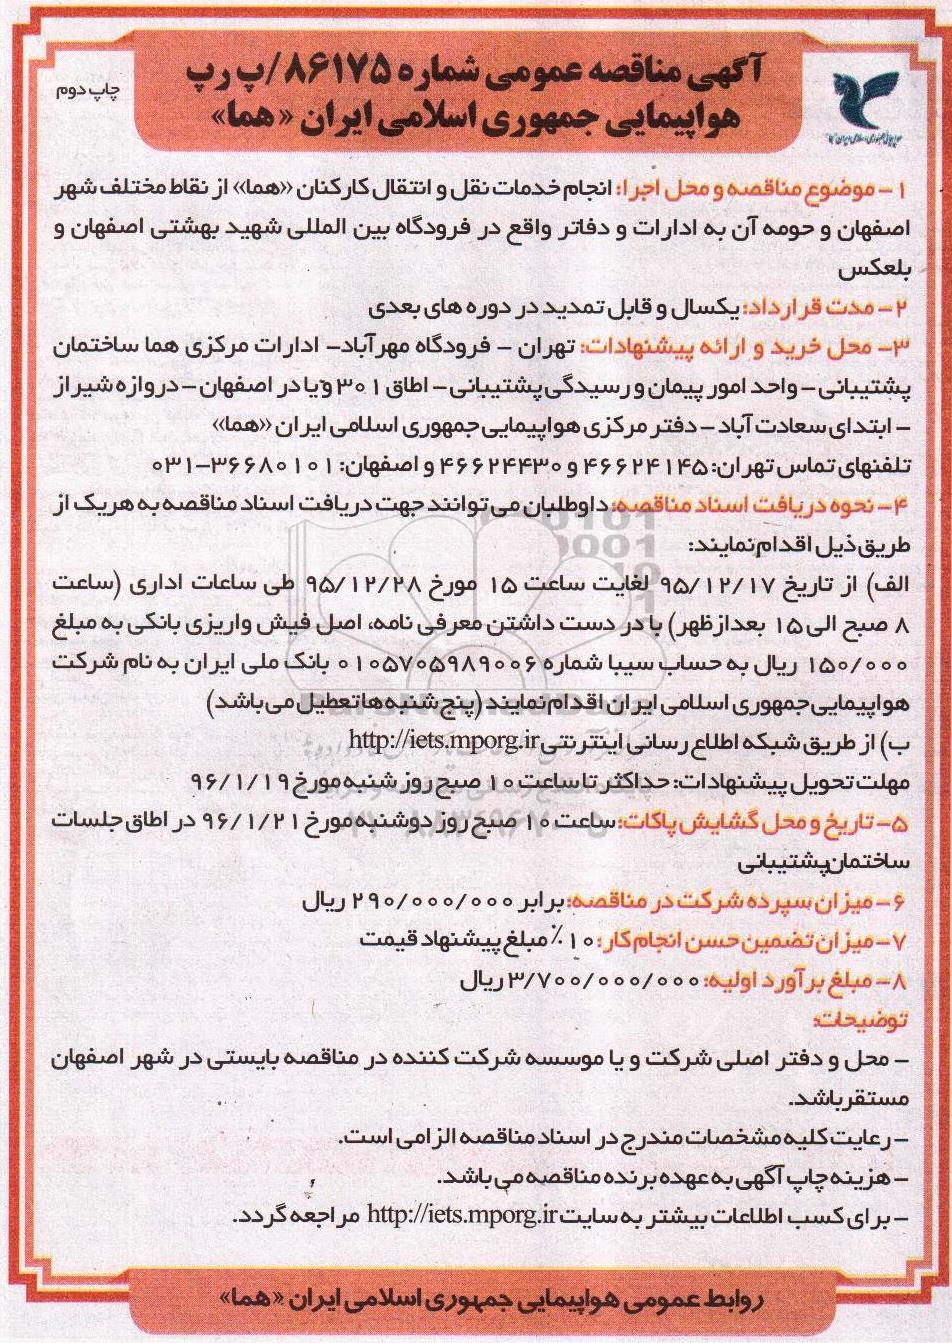 آگهی مناقصه عمومی شماره ۸۶۱۷۵/پ ر پ
هواپیمایی جمهوری اسلامی ایران «هما»
چاپ دوم
۱- موضوع مناقصه و محل اجرا: انجام خدمات نقل و انتقال کارکنان «هما» از نقاط مختلف شهر
اصفهان و حومه آن به ادارات و دفاتر واقع در فرودگاه بین المللی شهید بهشتی اصفهان و
بلعکس
۲- مدت قرارداد: یکسال و قابل تمدید در دوره های بعدی
۳- محل خرید و ارائه پیشنهادات: تهران - فرودگاه مهرآباد- ادارات مرکزی هما ساختمان
پشتیبانی- واحد امور پیمان و رسیدگی پشتیبانی- اطاق ۳۰۱ و یا در اصفهان- دروازه شیراز
- ابتدای سعادت آباد - دفتر مرکزی هواپیمایی جمهوری اسلامی ایران «هما»
تلفنهای تماس تهران: ۴۶۶۲۴۱۴۵ و ۴۶۶۲۴۴۳۰ و اصفهان: ۳۶۶۸۰۱۰۱-۰۳۱
۴- نحوه دریافت اسناد مناقصه: داوطلبان می توانند جهت دریافت اسناد مناقصه به هریک از
طریق ذیل اقدام نمایند:
الف) از تاریخ ۹۵/۱۲/۱۷ لغایت ساعت ۱۵ مورخ ۹۵/۱۲/۲۸ طی ساعات اداری (ساعت
۸ صبح الی ۱۵ بعدازظهر) با در دست داشتن معرفی نامه، اصل فیش واریزی بانکی به مبلغ
۱۵۰/۰۰۰ ریال به حساب سیبا شماره ۰۱۰۵۷۰۵۹۸۹۰۰۶ بانک ملی ایران به نام شرکت
هواپیمایی جمهوری اسلامی ایران اقدام نمایند (پنج شنبه ها تعطیل می باشد)
ب) از طریق شبکه اطلاع رسانی اینترنتی http://iets.mporg.ir
مهلت تحویل پیشنهادات: حداکثر تا ساعت ۱۰ صبح روز شنبه مورخ ۹۶/۱/۱۹
۵- تاریخ و محل گشایش پاکات: ساعت ۱۰ صبح روز دوشنبه مورخ ۹۶/۱/۲۱ در اطاق جلسات
ساختمان پشتیبانی
۶- میزان سپرده شرکت در مناقصه: برابر ۲۹۰/۰۰۰/۰۰۰ ریال
۷- میزان تضمین حسن انجام کار: ۱۰٪ مبلغ پیشنهاد قیمت
۸- مبلغ برآورد اولیه: ۳/۷۰۰/۰۰۰/۰۰۰ ریال
توضیحات:
- محل و دفتر اصلی شرکت و یا موسسه شرکت کننده در مناقصه بایستی در شهر اصفهان
مستقر باشد.
- رعایت کلیه مشخصات مندرج در اسناد مناقصه الزامی است.
- هزینه چاپ آگهی به عهده برنده مناقصه می باشد.
- برای کسب اطلاعات بیشتر به سایت http://iets.mporg.ir مراجعه گردد.
روابط عمومی هواپیمایی جمهوری اسلامی ایران «هما»